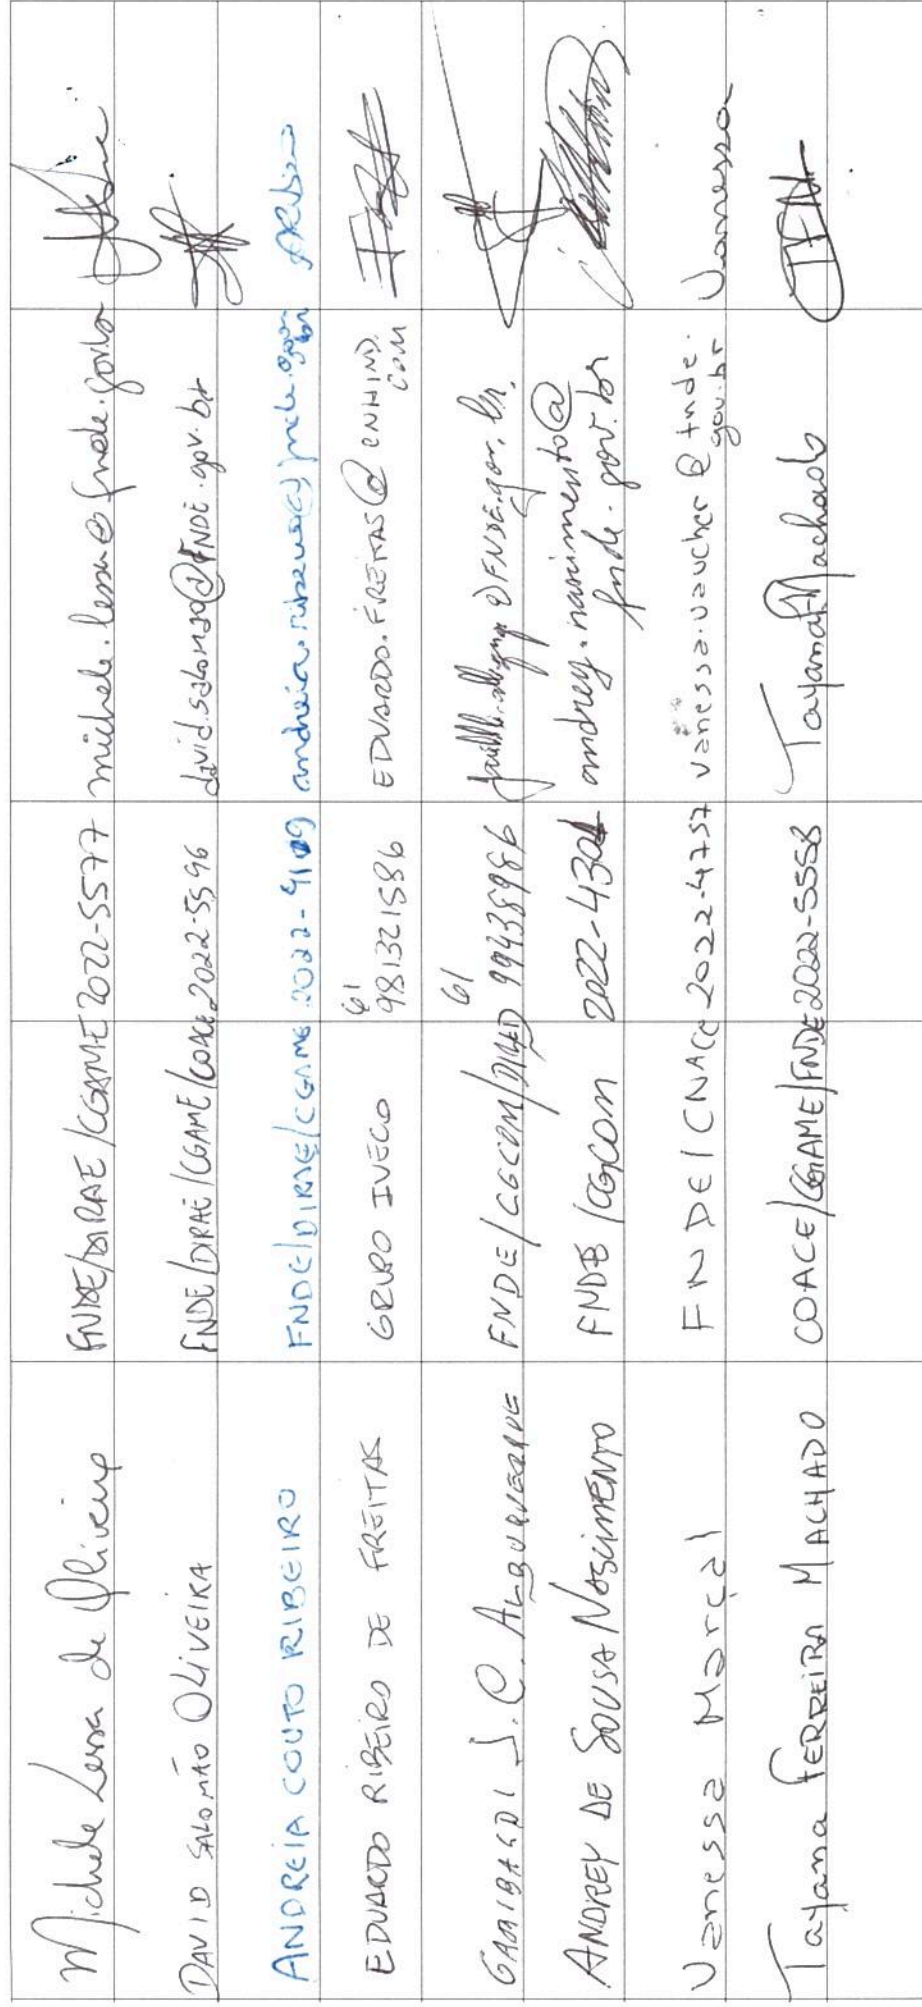 Michele Lessa de Oliveira FNDE/DIRAE/CGAME 2022-5577 michele.lessa@fnde.gov.br
DAVID SALOMÃO OLIVEIRA FNDE/DIRAE/CGAME/COACE 2022-5596 david.salomao@FNDE.gov.br
ANDREIA COUTO RIBEIRO FNDE/DIRAE/CGAME 2022-4109 andreia.ribeiro@fnde.gov.br
EDUARDO RIBEIRO DE FREITAS GRUPO IVECO 61 981321586 EDUARDO.FREITAS@CNHIND.COM
GARIBALDI J.C. ALBUQUERQUE FNDE/CGCOM/DIRED 61 99438986 @FNDE.gov.br
ANDREY DE SOUSA NASCIMENTO FNDE/CGCOM 2022-4304 andrey.nascimento@
fnde.gov.br
Vanessa Marçal FNDE/CNACC 2022-4757 vanessa.vaucher@fnde.
gov.br Vanessa
Tayana FERREIRA MACHADO COACE/CGAME/FNDE 2022-5558 TayanaFMachado TFM